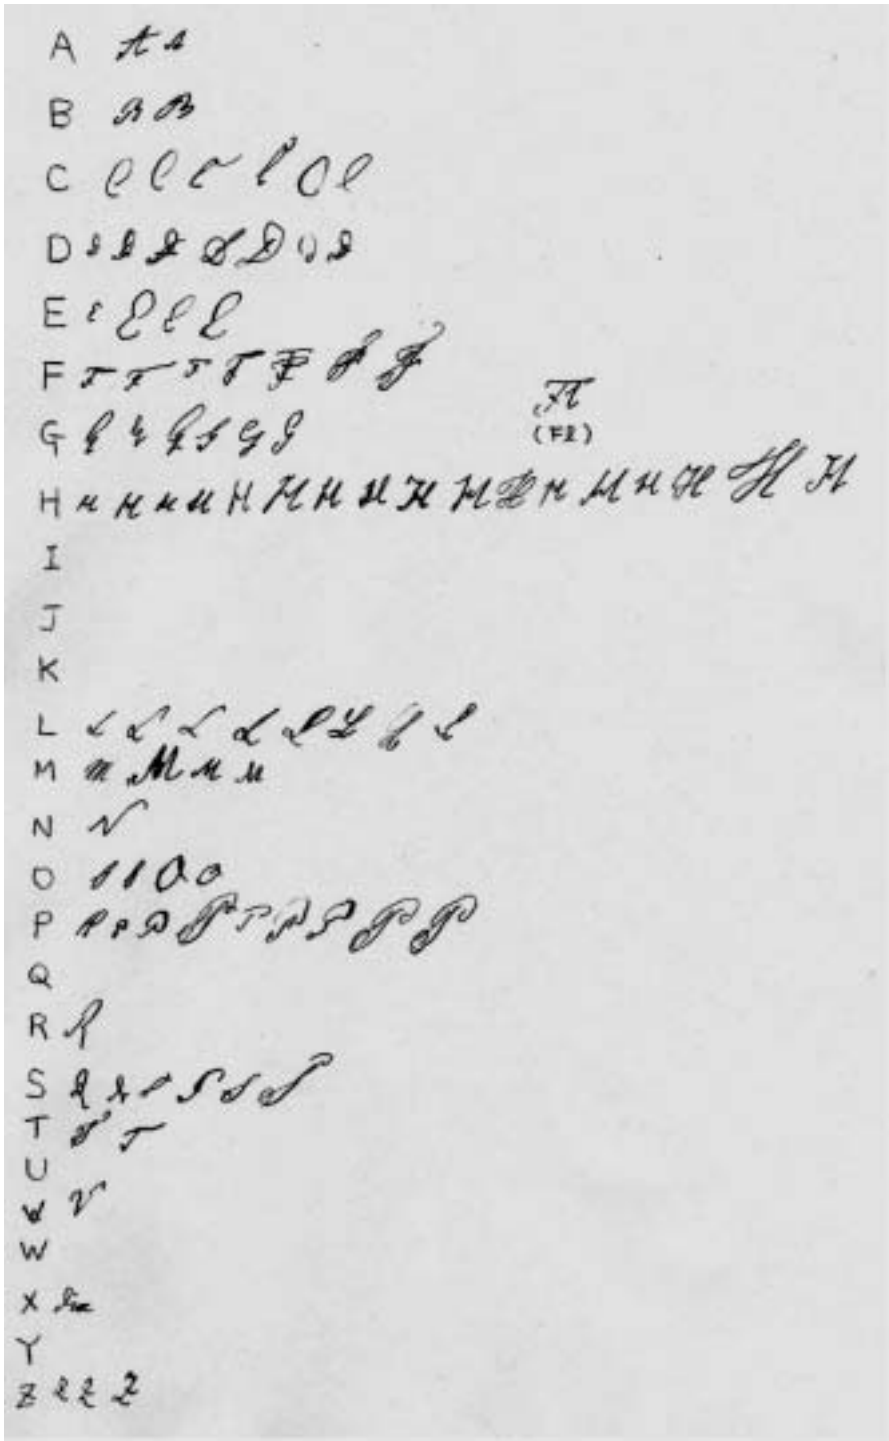 A A A
B B B
C C C C C C C
D D D D D D D D
E E E E E
F F F F F F F F
Fl
G G G G G G G
(Fl)
H H H H H H H H H H H H H H H H H H
I
J
K
L L L L L L L L L
M M M M M
N N
O O O O O
P P P P P P P P P P
Q
R R
S S S S S S S
T T T
U
V V
W
X
Y
Z Z Z Z